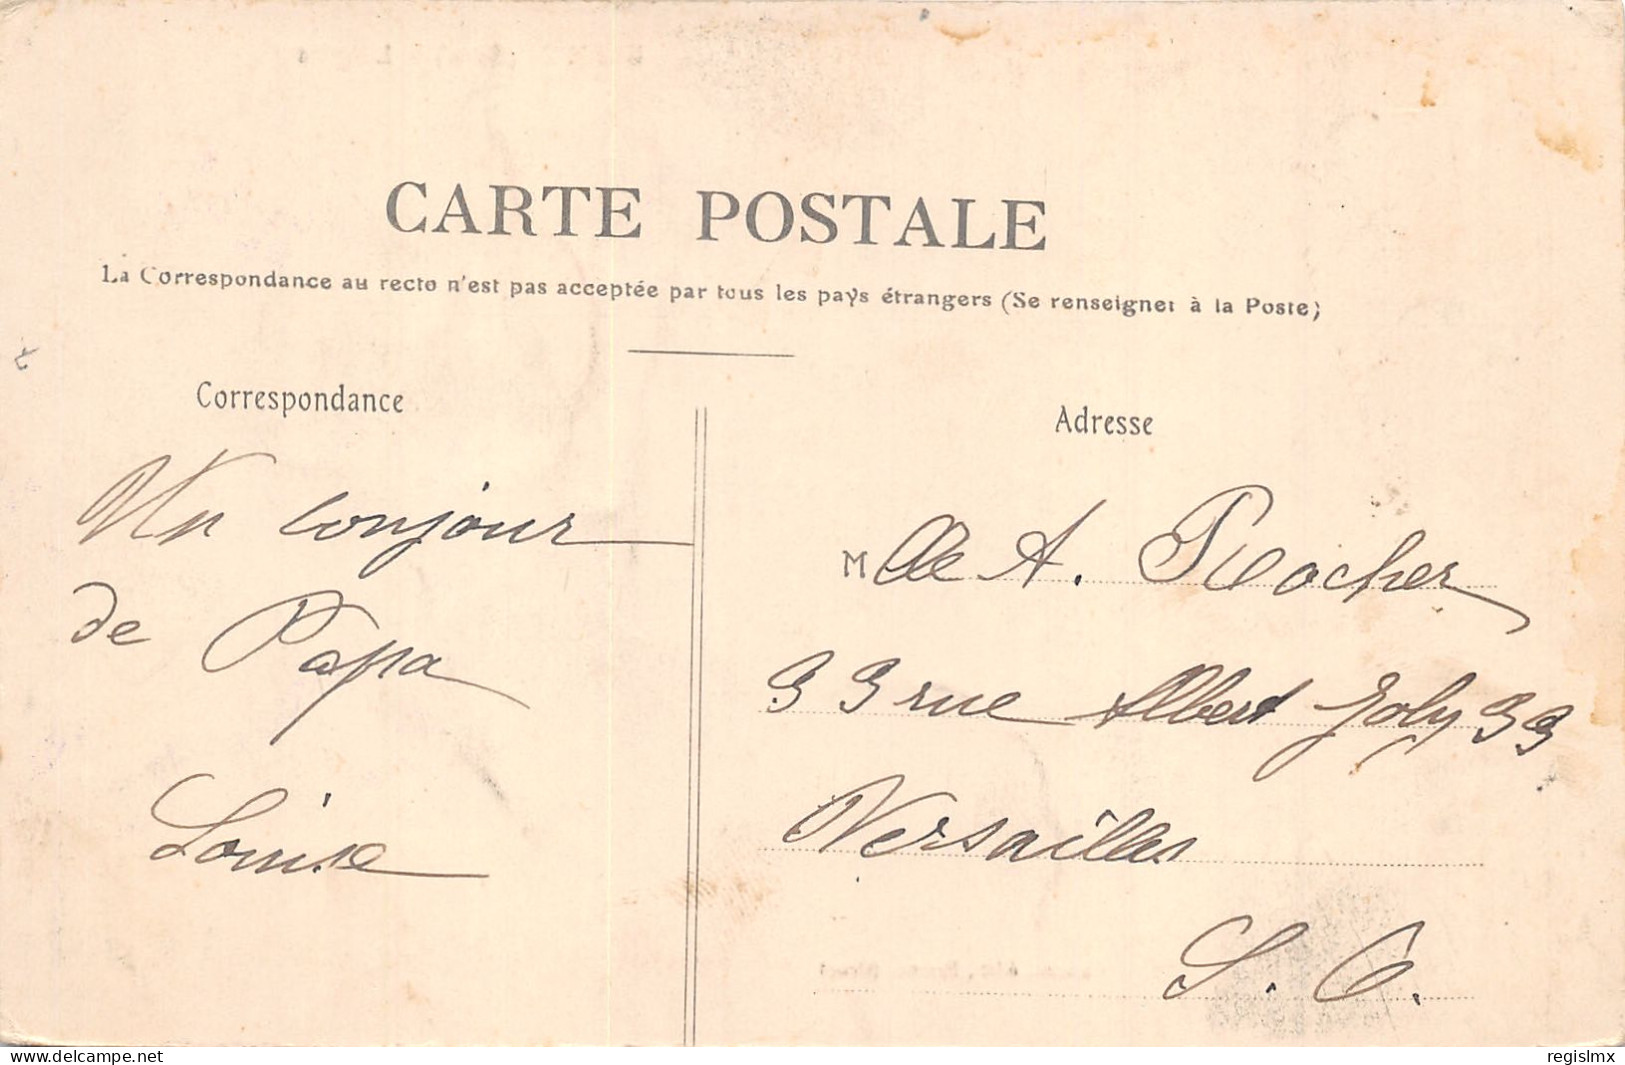 CARTE POSTALE
La Correspondance au recto n'est pas acceptée par tous les pays étrangers (Se renseigner à la Poste)
Correspondance
Un bonjour
de Papa
Louise
Adresse
Mlle A. Rocher
33 rue Albert Joly 33
Versailles
S. O.
www.delcampe.net
regislmx